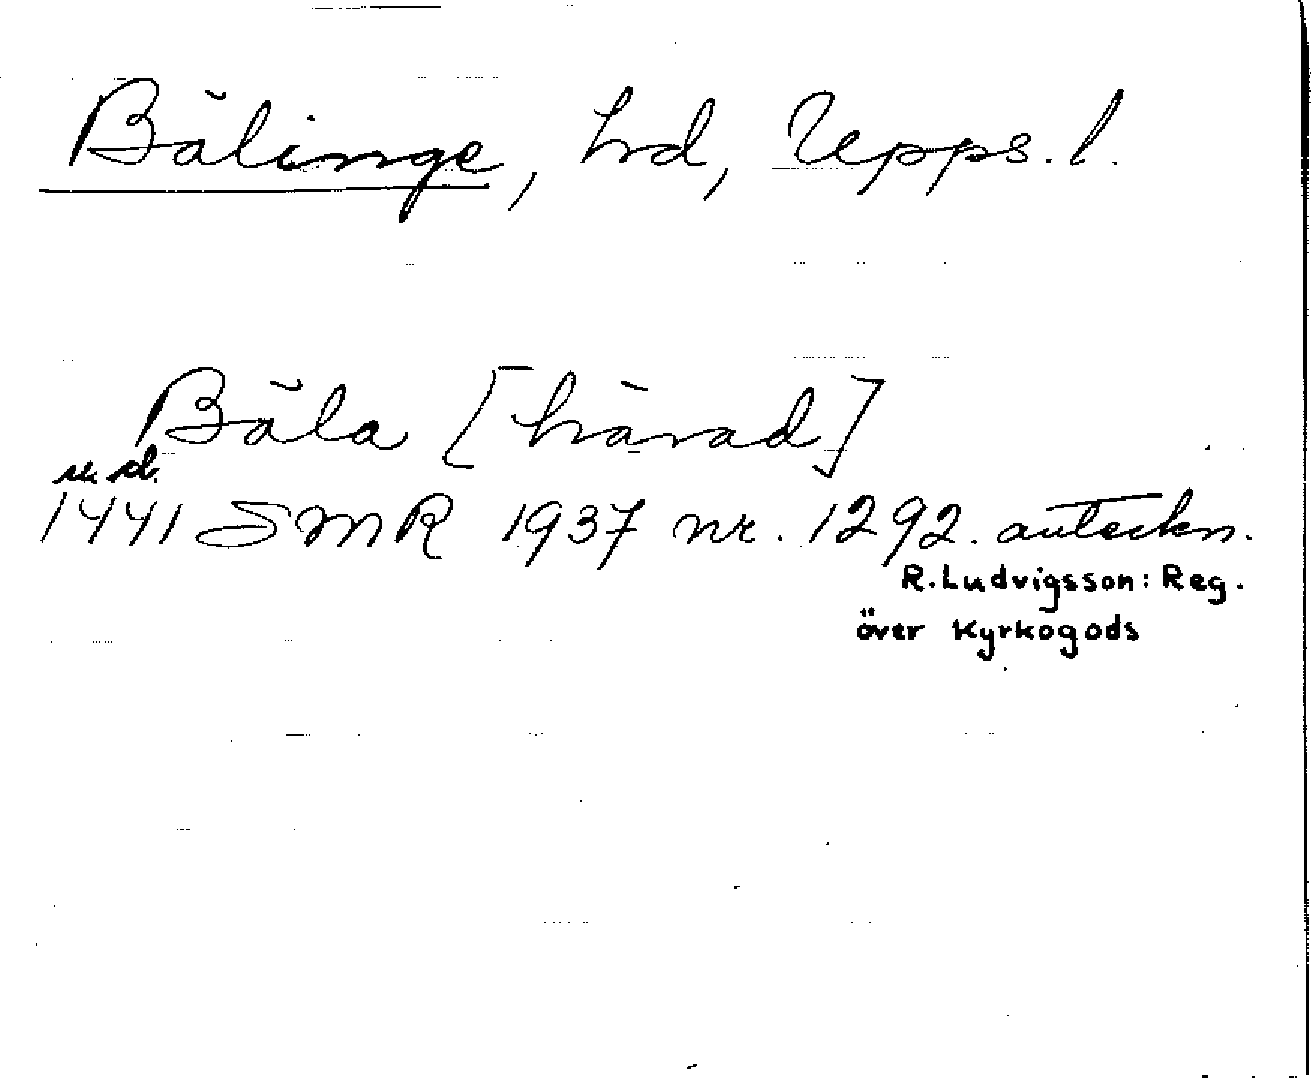 Bälinge, hrd, Upps. l.
Bäla [härad]
u. d.
1441 SMR 1937 nr. 1292. anteckn.
R. Ludvigsson: Reg.
över Kyrkogods